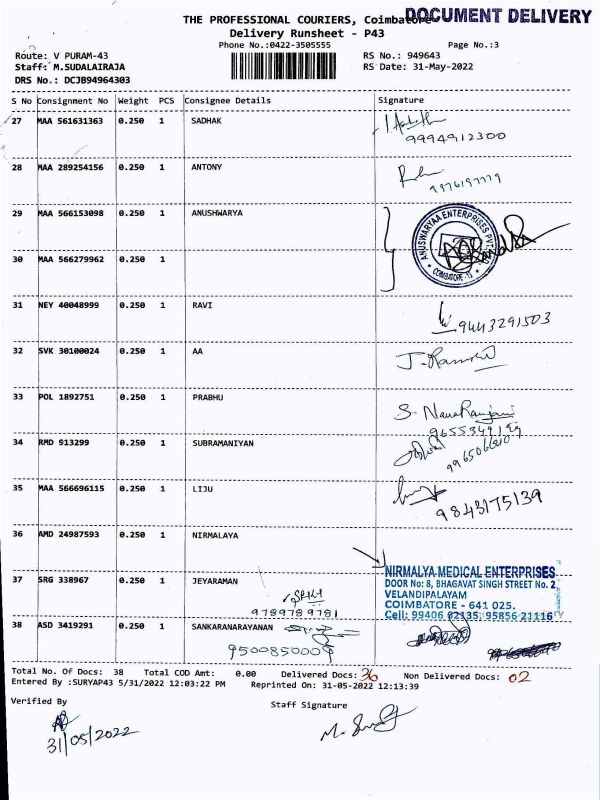 THE PROFESSIONAL COURIERS, Coimbatore
DOCUMENT DELIVERY
Delivery Runsheet - P43
Phone No.:0422-3505555
Page No.:3
Route: V PURAM-43
RS No.: 949643
Staff: M.SUDALAIRAJA
RS Date: 31-May-2022
DRS No.: DCJB94964303
S No Consignment No Weight PCS Consignee Details Signature
27 MAA 561631363 0.250 1 SADHAK
9994912300
28 MAA 289254156 0.250 1 ANTONY
29 MAA 566153098 0.250 1 ANUSHWARYA
ANUSWARYAA ENTERPRISES PVT
COIMBATORE
30 MAA 566279962 0.250 1
31 NEY 40048999 0.250 1 RAVI
9443291503
32 SVK 30100024 0.250 1 AA
33 POL 1892751 0.250 1 PRABHU
34 RMD 913299 0.250 1 SUBRAMANIYAN
35 MAA 566696115 0.250 1 LIJU
9843175139
36 AMD 24987593 0.250 1 NIRMALAYA
NIRMALYA MEDICAL ENTERPRISES
37 SRG 338967 0.250 1 JEYARAMAN
DOOR No: 8, BHAGAVAT SINGH STREET No. 2
VELANDIPALAYAM
COIMBATORE - 641 025.
9789789781
Cell: 99406 02135, 95856 21116
38 ASD 3419291 0.250 1 SANKARANARAYANAN
9500850009
Total No. Of Docs: 38 Total COD Amt: 0.00 Delivered Docs: 36 Non Delivered Docs: 02
Entered By :SURYAP43 5/31/2022 12:03:22 PM Reprinted On: 31-05-2022 12:13:39
Verified By
Staff Signature
31/05/2022